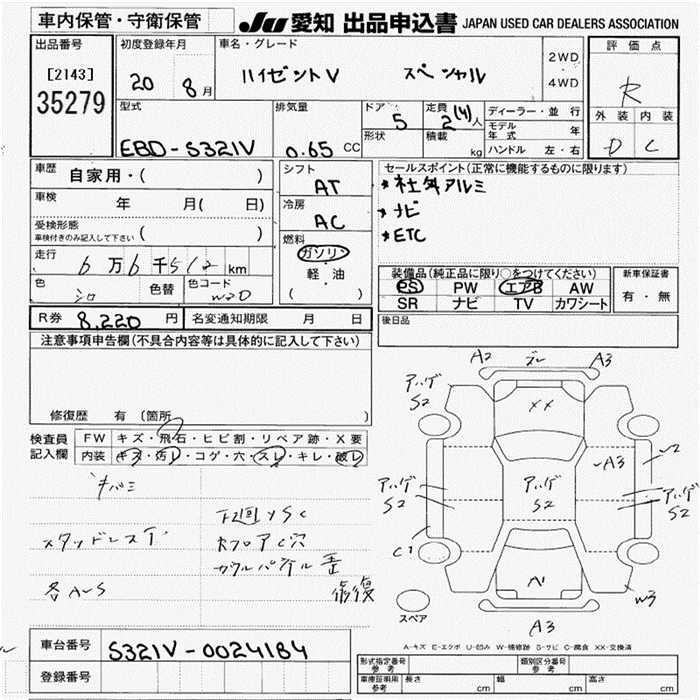 車内保管・守衛保管
JU 愛知 出品申込書 JAPAN USED CAR DEALERS ASSOCIATION
出品番号
[2143]
35279
初度登録年月
20 8月
車名・グレード
ハイゼットV スペシャル
2WD
・
4WD
評価点
R
外装 内装
D C
型式
EBD-S321V
排気量
0.65 CC
ドア
5
形状
定員
2(4)人
積載 kg
ディーラー・並行
モデル年式 年
ハンドル 左・右
車歴
自家用・( )
車検
年 月( 日)
受検形態
車検付きのみ記入して下さい ( )
走行
6万6千512km
色
シロ
色替
色コード
W20
シフト
AT
冷房
AC
燃料
ガソリン
軽・油
( )
セールスポイント(正常に機能するものに限ります)
* 社外アルミ
* ナビ
* ETC
装備品(純正品に限り○をつけてください)
PS PW エアB AW
SR ナビ TV カワシート
新車保証書
有・無
R券 8,220円
名変通知期限 月 日
後日品
注意事項申告欄(不具合内容等は具体的に記入して下さい)
修復歴 有 (箇所 )
検査員
記入欄
FW キズ・飛石・ヒビ割・リペア跡・X要
内装 キズ・汚レ・コゲ・穴・スレ・キレ・破レ
キバミ
下廻りSC
スタッドレスT
フロアC穴
カウルパネル歪
各A〜S
修復
A2 A3
アハゲ
S2
XX
A3
U2
アハゲ
S2
アハゲ
S2
アハゲ
S2
C1
A1
W3
スペア
A3
A-キズ E-エクボ U-凹み W-補修跡 S-サビ C-腐食 XX-交換済
車台番号
S321V-0024184
登録番号
形式指定番号
参考
類別区分番号
参考
車庫証明用
参考
長さ cm
幅 cm
高さ cm